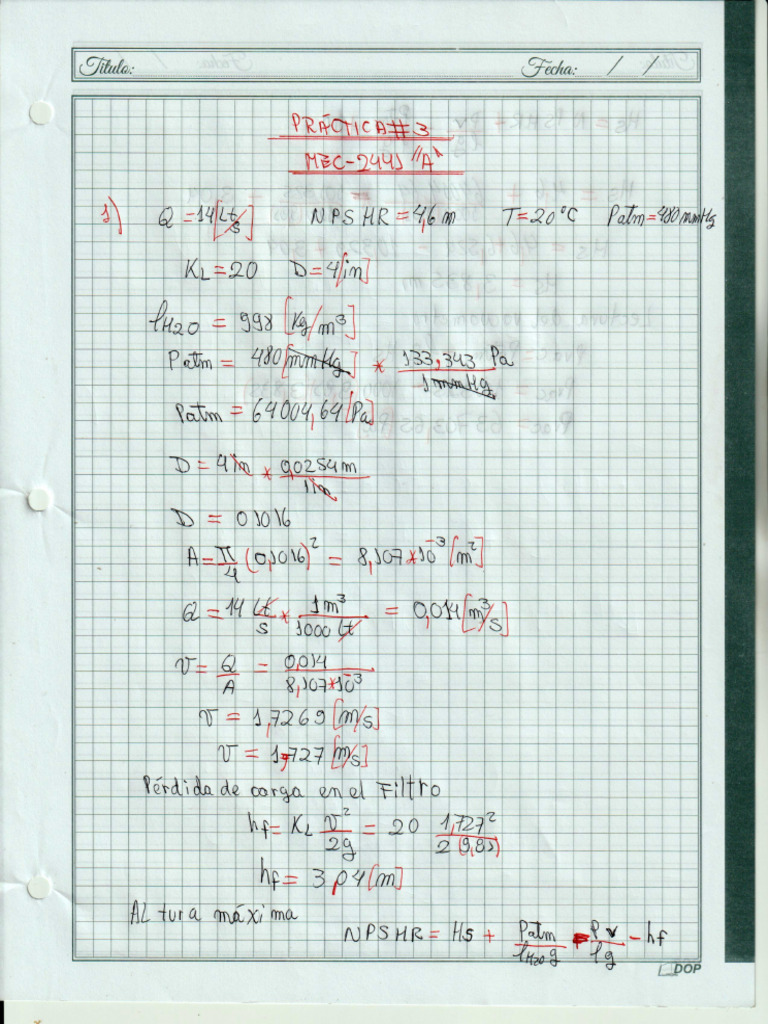 Título: Fecha: / /
PRÁCTICA # 3
MEC-2445 "A"
1) Q = 14 [Lt/s] NPSHR = 4,6 m T = 20°C Patm = 480 mmHg
KL = 20 D = 4 [in]
ρH2O = 998 [Kg/m³]
Patm = 480 [mmHg] * 133,343 Pa / 1 mmHg
Patm = 64004,64 [Pa]
D = 4 in * 0,0254 m / 1 in
D = 0,1016
A = π/4 (0,1016)² = 8,107*10⁻³ [m²]
Q = 14 Lt/s * 1 m³ / 1000 Lt = 0,014 [m³/s]
V = Q/A = 0,014 / 8,107*10⁻³
V = 1,7269 [m/s]
V = 1,727 [m/s]
Pérdida de carga en el Filtro
hf = KL V²/2g = 20 1,727² / 2 (9,81)
hf = 3,04 [m]
ALtura máxima
NPSHR = Hs + Patm/ρH2O g - Pv/ρg - hf
DOP